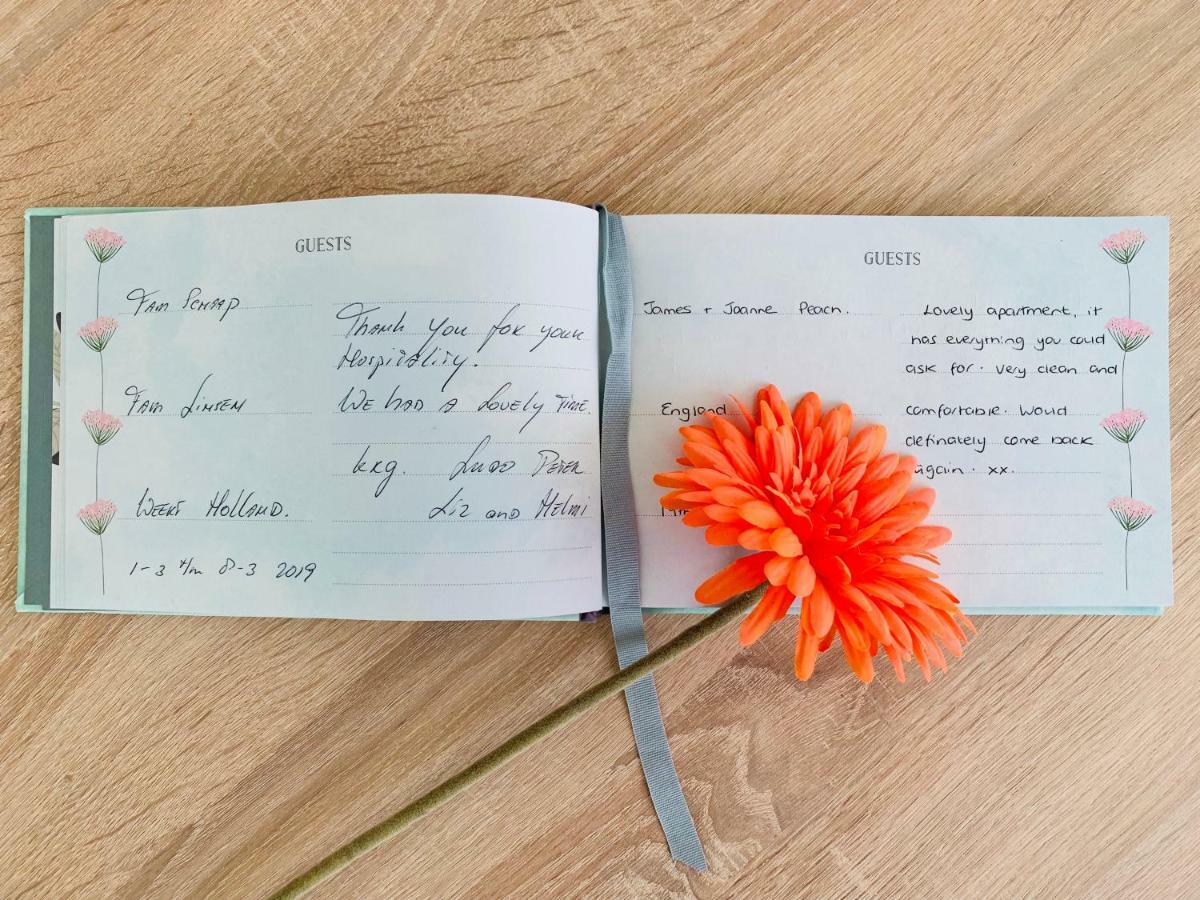 GUESTS
Fam Schaap
Thank you for your
Hospitality.
Fam Linsen
We had a lovely time.
kkg. Ludo Peter
Weert Holland.
Liz and Helmi
1-3 t/m 8-3 2019
GUESTS
James + Joanne Peach.
Lovely apartment, it
has everything you could
ask for. Very clean and
England
comfortable. Would
definately come back
again. xx.